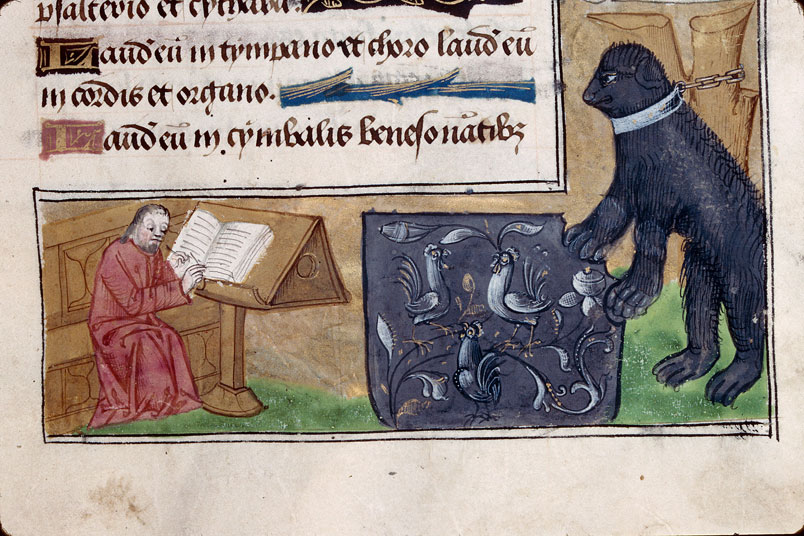 psalterio et cythara.
Laud̄ eū in tympano et choro laud̄ eū
in cordis et organo.
Laud̄ eū in cymbalis benesonātibꝫ